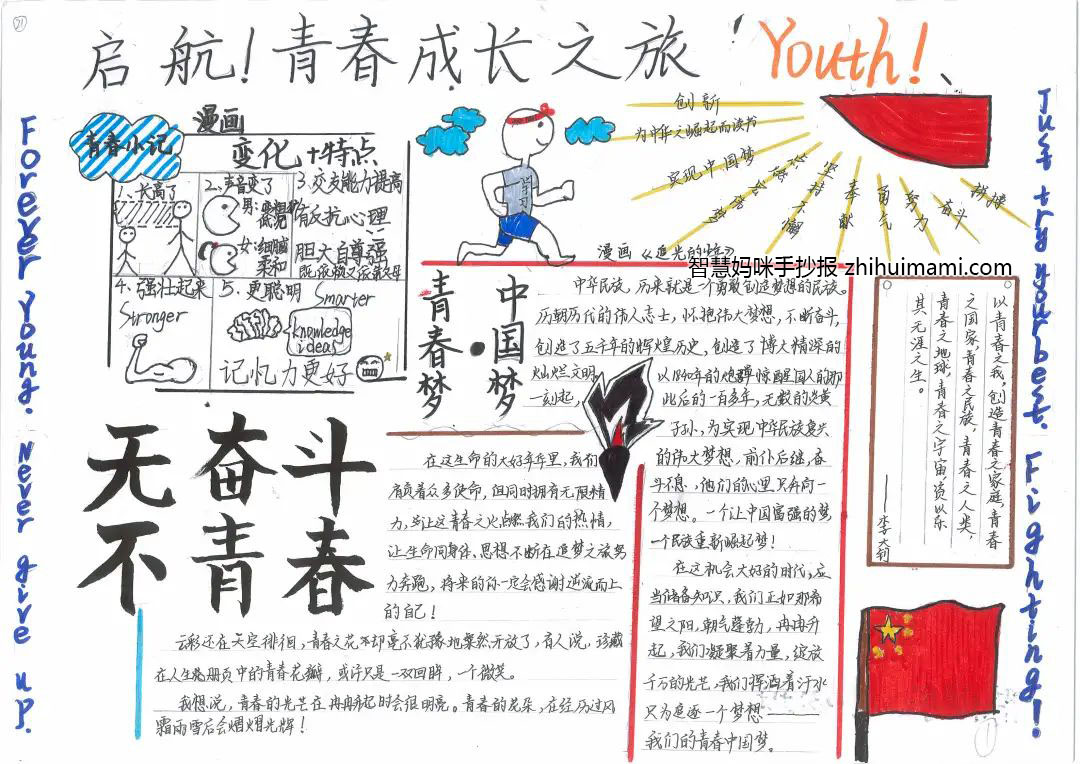 21
启航!青春成长之旅 Youth!
Forever young. Never give up.
青春小记
漫画
变化+特点
1、长高了
2、声音变了
男:
女:细腻
柔和
3、交友能力提高
有反抗心理
胆大自尊强
4、强壮起来
Stronger
5、更聪明 Smarter
knowledge
ideas
记忆力更好
学习
创新
为中华之崛起而读书
实现中国梦
坚持不懈
奉献
勇气
努力
奋斗
拼搏
漫画《追光的你》
智慧妈咪手抄报 zhihuimami.com
青春梦·中国梦
中华民族,历来就是一个勇敢创造梦想的民族。
历朝历代的伟人志士,怀抱伟大梦想,不断奋斗,
创造了五千年的辉煌历史,创造了博大精深的
灿烂文明。以1840年的炮弹惊醒国人的那
一刻起,此后的一百多年,无数的炎黄
子孙,为实现中华民族复兴
的伟大梦想,前仆后继,奋
斗不息,他们的心里只有同一
个梦想。一个让中国富强的梦
一个民族重新崛起梦!
在这机会大好的时代,应
当储备知识,我们正如那希
望之阳,朝气蓬勃,冉冉升
起,我们凝聚着力量,绽放
千万的光芒,我们挥洒着汗水
只为追逐一个梦想————
我们的青春中国梦。
以青春之我,创造青春之家庭,青春
之国家,青春之民族,青春之人类,
青春之地球,青春之宇宙,资以乐
其无涯之生。
——李大钊
无奋斗
不青春
在这生命的大好年华里,我们
肩负着众多使命,但同时拥有无限精
力,并让这青春之火点燃我们的热情,
让生命同身体、思想不断在追梦之旅努
力奔跑,将来的你一定会感谢逆流而上
的自己!
云彩还在天空徘徊,青春之花不却毫不犹豫地粲然开放了,有人说,珍藏
在人生纪册页中的青春花瓣,或许只是一双回眸,一个微笑。
我想说,青春的光芒在冉冉升起时会很明亮。青春的花朵,在经历过风
霜雨雪后会熠熠光辉!
Just try your best. Fighting!